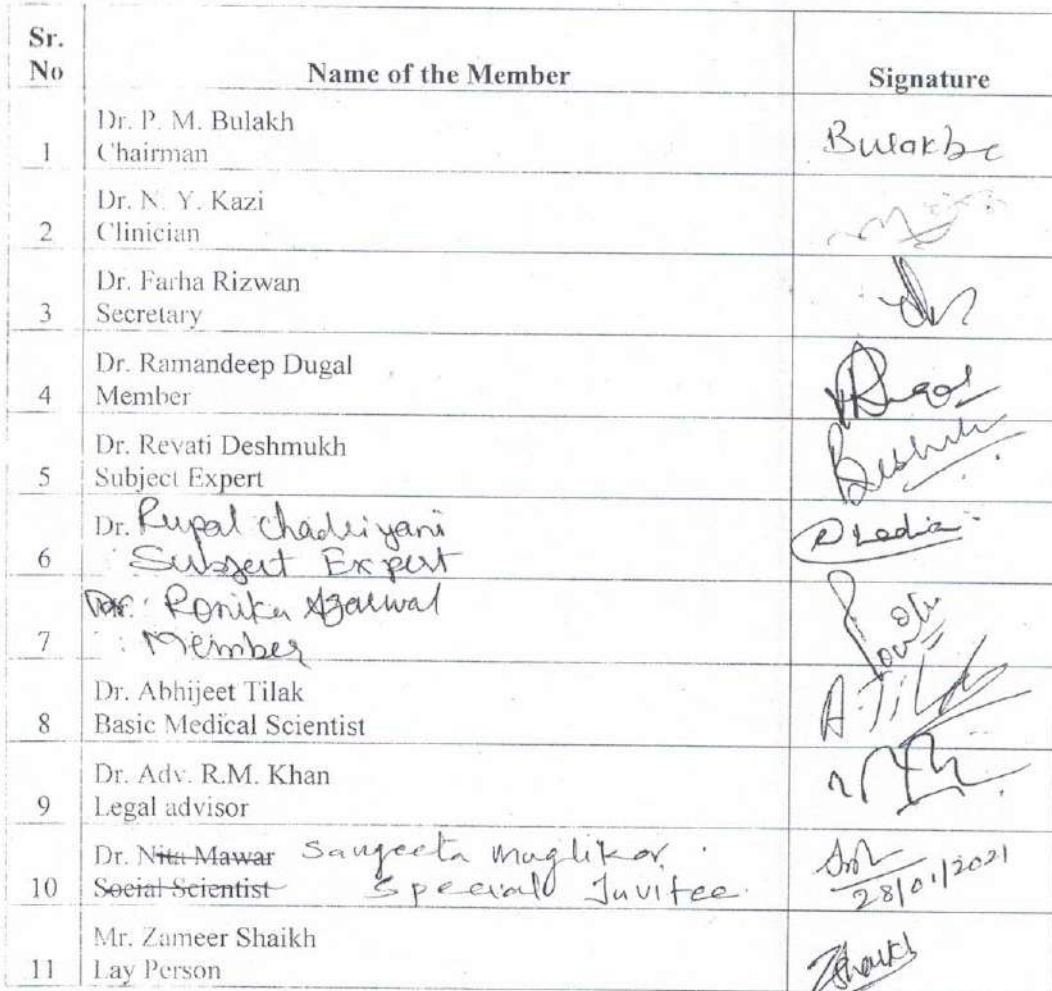 Sr.
No
Name of the Member
Signature
Dr. P. M. Bulakh
1
Chairman
Bulakhe
Dr. N. Y. Kazi
2
Clinician
Dr. Farha Rizwan
3
Secretary
Dr. Ramandeep Dugal
4
Member
Dr. Revati Deshmukh
5
Subject Expert
Dr. Rupal
6
Subject Expert
Dr. Ronika Agarwal
7
Member
Dr. Abhijeet Tilak
8
Basic Medical Scientist
A. Tilak
Dr. Adv. R.M. Khan
9
Legal advisor
Dr. Nita Mawar Sangeeta Muglikar
10
Social Scientist Special Invitee
28/01/2021
Mr. Zameer Shaikh
11
Lay Person
ZShaikh